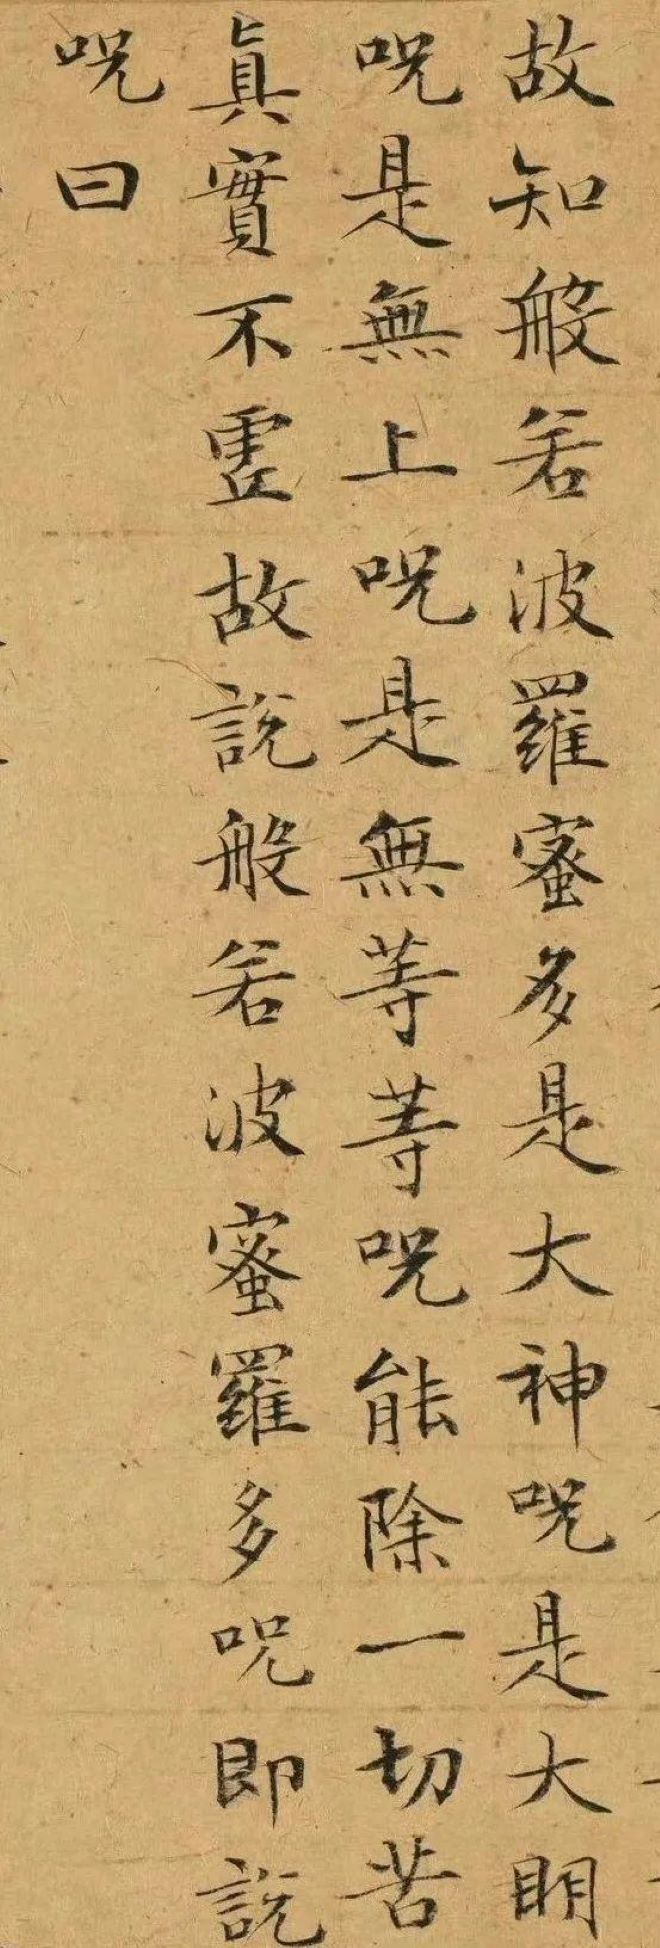 故知般若波羅蜜多是大神呪是大明
呪是無上呪是無等等呪能除一切苦
真實不虛故說般若波蜜羅多呪即說
呪曰